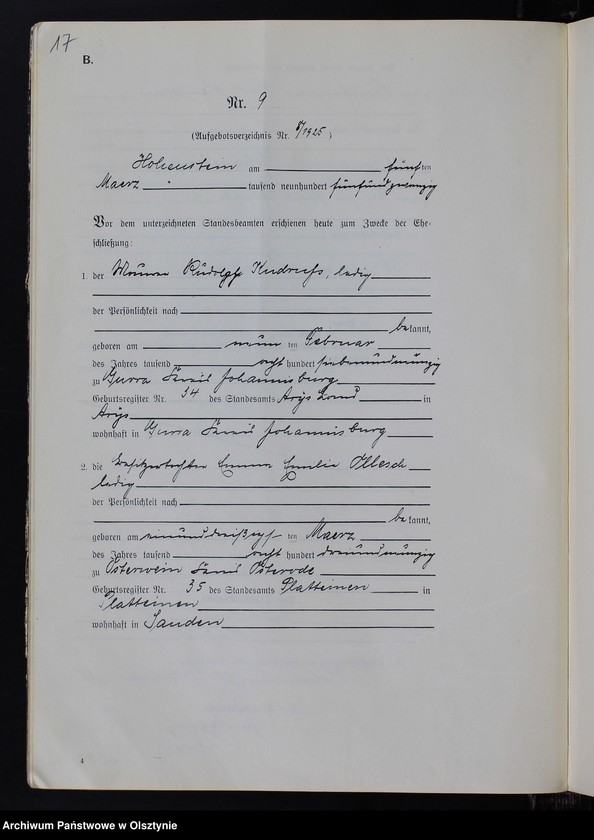 17
B.
Nr. 9
(Aufgebotsverzeichnis Nr. 8/1925)
Hohenstein am fünf ten
Maerz tausend neunhundert fünfundzwanzig
Vor dem unterzeichneten Standesbeamten erschienen heute zum Zwecke der Ehe-
schließung:
1. der Maurer Rudolf, ledig
der Persönlichkeit nach
bekannt,
geboren am neun ten Februar
des Jahres tausend acht hundert siebenundneunzig
zu Gurra Kreis Johannisburg
Geburtsregister Nr. 34 des Standesamts Arys Land in
Arys
wohnhaft in Gurra Kreis Johannisburg
2. die Besitzertochter Emma Emilie Ollesch
ledig
der Persönlichkeit nach
bekannt,
geboren am einunddreißigs ten Maerz
des Jahres tausend acht hundert dreiundneunzig
zu Osterwein Kreis Osterode
Geburtsregister Nr. 35 des Standesamts Platteinen in
Platteinen
wohnhaft in Sauden
4
Archiwum Państwowe w Olsztynie